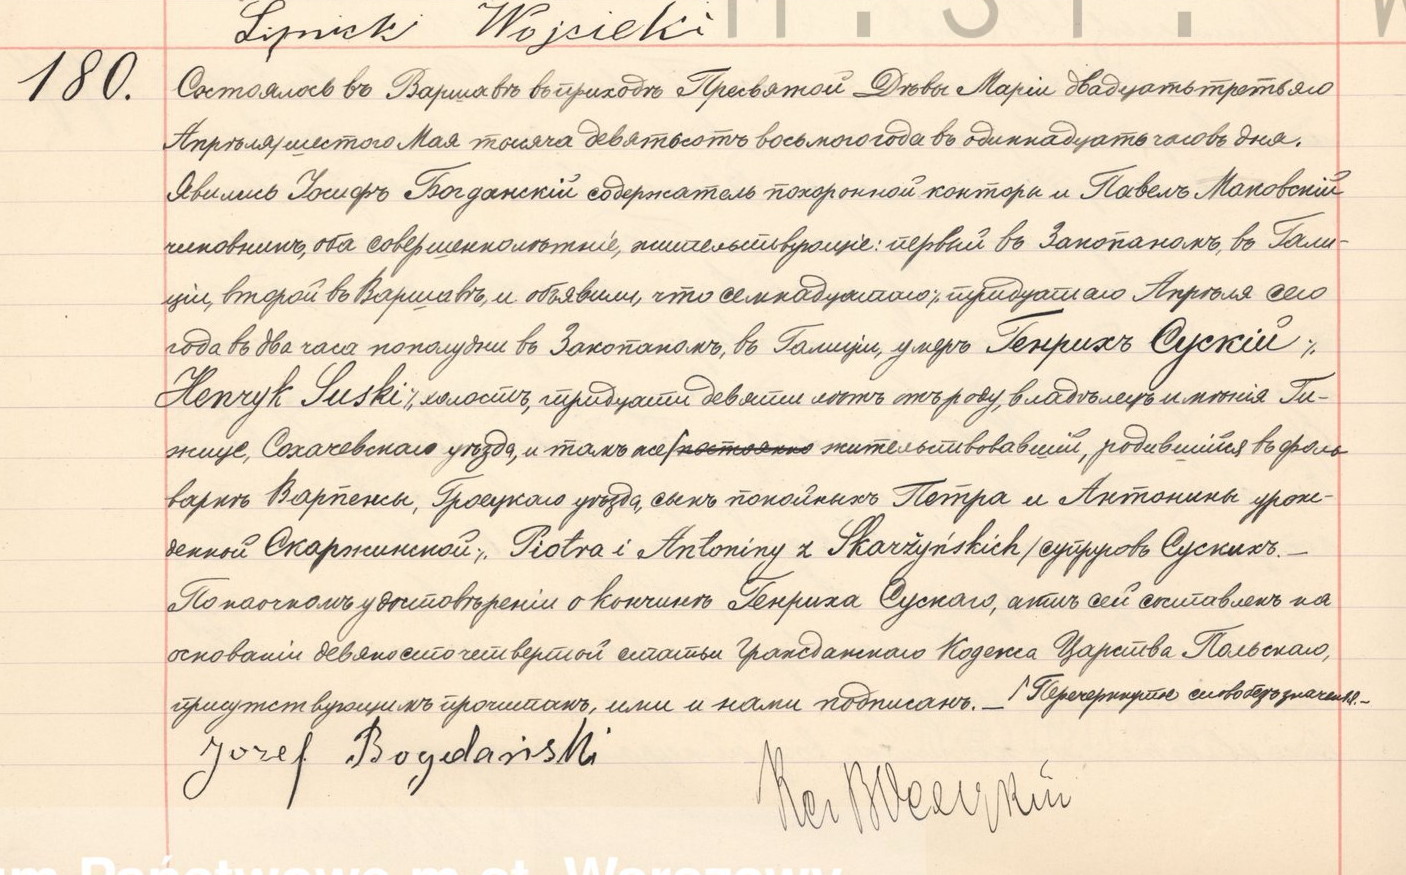 Lipnick Wojcicki
180.
Состоялось въ Варшавѣ въ приходѣ Пресвятой Дѣвы Маріи двадцать третьяго
Апрѣля/шестого Мая тысяча девятьсотъ восьмого года въ одиннадцать часовъ дня.
Явились Іосифъ Богданскій содержатель похоронной конторы и Павелъ Маковскій
чиновникъ, оба совершеннолѣтніе, жительствующіе: первый въ Закопаномъ, въ Гали-
ціи, второй въ Варшавѣ, и объявили, что семнадцатаго % тридцатаго Апрѣля сего
года въ два часа пополудни въ Закопаномъ, въ Галиціи, умеръ Генрихъ Сускій %.
Henryk Suski %, холостъ, тридцати девяти лѣтъ отъ роду, владѣлецъ имѣнія Ги-
жице, Сохачевскаго уѣзда, и тамъ же / постоянно жительствовавшій, родившійся въ фоль
варкѣ Варпенсы, Гроецкаго уѣзда, сынъ покойныхъ Петра и Антонины урож-
денной Скаржинской %. Piotra i Antoniny z Skarżyńskich / супруговъ Сускихъ. —
По наочномъ удостовѣреніи о кончинѣ Генриха Сускаго, актъ сей составленъ на
основаніи девяносто четвертой статьи Гражданскаго Кодекса Царства Польскаго,
присутствующимъ прочитанъ, ими и нами подписанъ. — / Перечеркнутое слово безъ значенія. —
Jozef Bogdański
Кс.
um Państwowe m.st. Warszawy